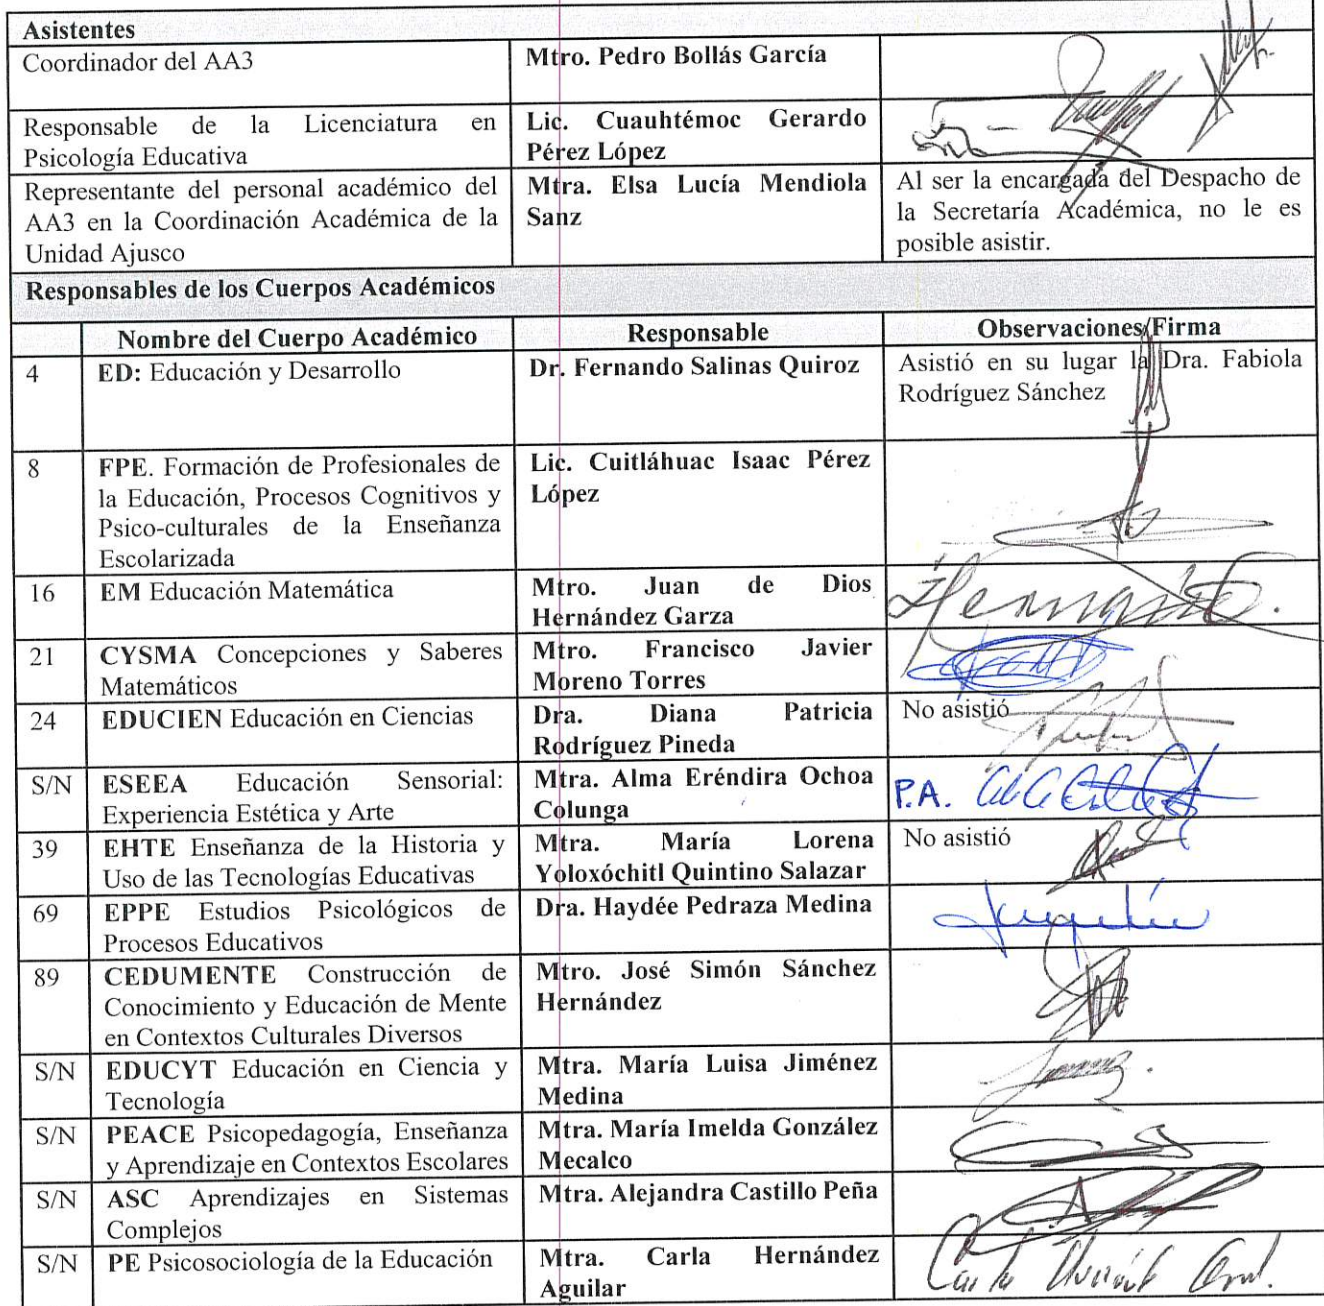 Asistentes
Coordinador del AA3
Mtro. Pedro Bollás García
Responsable de la Licenciatura en
Psicología Educativa
Lic. Cuauhtémoc Gerardo
Pérez López
Representante del personal académico del
AA3 en la Coordinación Académica de la
Unidad Ajusco
Mtra. Elsa Lucía Mendiola
Sanz
Al ser la encargada del Despacho de
la Secretaría Académica, no le es
posible asistir.
Responsables de los Cuerpos Académicos
Nombre del Cuerpo Académico
Responsable
Observaciones/Firma
4
ED: Educación y Desarrollo
Dr. Fernando Salinas Quiroz
Asistió en su lugar la Dra. Fabiola
Rodríguez Sánchez
8
FPE. Formación de Profesionales de
la Educación, Procesos Cognitivos y
Psico-culturales de la Enseñanza
Escolarizada
Lic. Cuitláhuac Isaac Pérez
López
16
EM Educación Matemática
Mtro. Juan de Dios
Hernández Garza
21
CYSMA Concepciones y Saberes
Matemáticos
Mtro. Francisco Javier
Moreno Torres
24
EDUCIEN Educación en Ciencias
Dra. Diana Patricia
Rodríguez Pineda
No asistió
S/N
ESEEA Educación Sensorial:
Experiencia Estética y Arte
Mtra. Alma Eréndira Ochoa
Colunga
P.A.
39
EHTE Enseñanza de la Historia y
Uso de las Tecnologías Educativas
Mtra. María Lorena
Yoloxóchitl Quintino Salazar
No asistió
69
EPPE Estudios Psicológicos de
Procesos Educativos
Dra. Haydée Pedraza Medina
89
CEDUMENTE Construcción de
Conocimiento y Educación de Mente
en Contextos Culturales Diversos
Mtro. José Simón Sánchez
Hernández
S/N
EDUCYT Educación en Ciencia y
Tecnología
Mtra. María Luisa Jiménez
Medina
S/N
PEACE Psicopedagogía, Enseñanza
y Aprendizaje en Contextos Escolares
Mtra. María Imelda González
Mecalco
S/N
ASC Aprendizajes en Sistemas
Complejos
Mtra. Alejandra Castillo Peña
S/N
PE Psicosociología de la Educación
Mtra. Carla Hernández
Aguilar